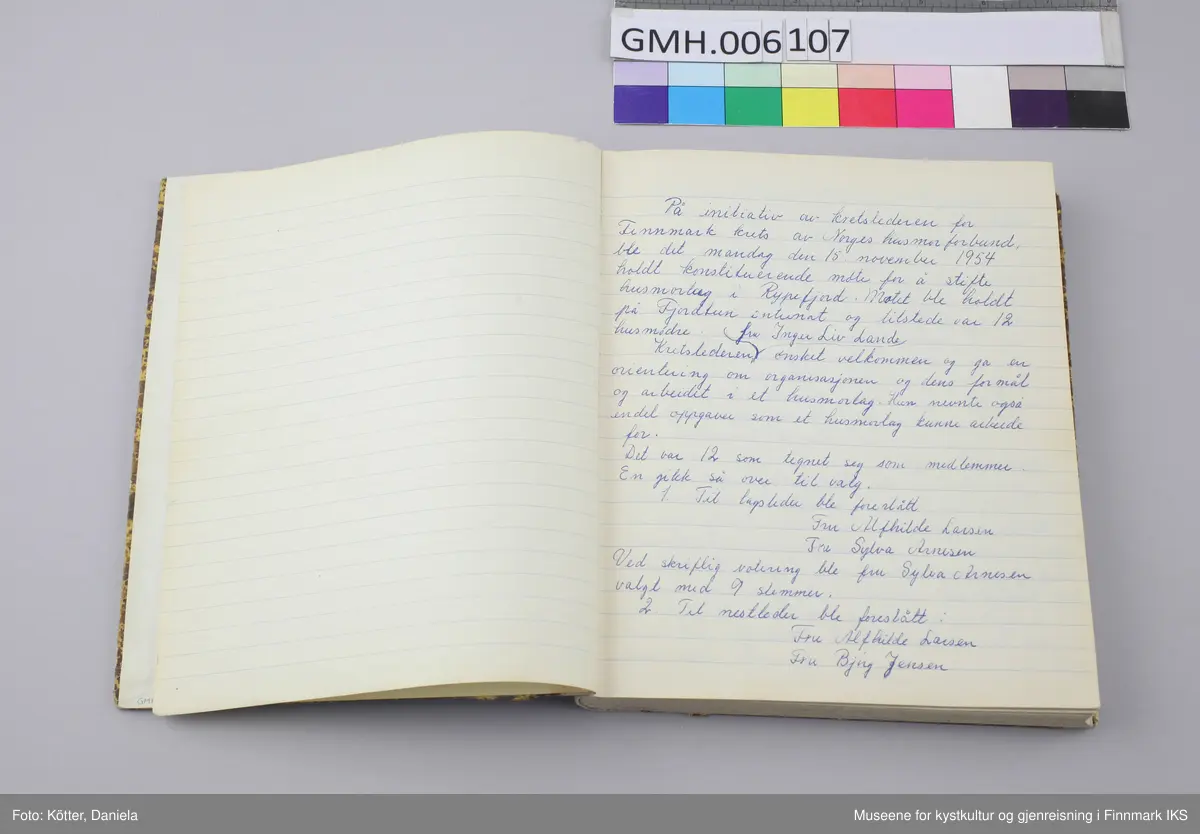 GMH.006107
På initiativ av kretslederen for
Finnmark krets av Norges husmorforbund,
ble det mandag den 15 november 1954
holdt konstituerende møte for å stifte
husmorlag i Rypefjord. Møtet ble holdt
på Fjordtun internat og tilstede var 12
husmødre.
fru Inger Liv Lande
Kretslederen ønsket velkommen og ga en
orientering om organisasjonen og dens formål
og arbeidet i et husmorlag. Hun nevnte også
endel oppgaver som et husmorlag kunne arbeide
for.
Det var 12 som tegnet seg som medlemmer.
En gikk så over til valg.
1. Til lagsleder ble foreslått
Fru Alfhilde Larsen
Fru Sylva Arnesen
Ved skriftlig votering ble fru Sylva Arnesen
valgt med 9 stemmer.
2 Til nestleder ble foreslått:
Fru Alfhilde Larsen
Fru Bjørg Jensen
GMH
Foto: Kötter, Daniela
Museene for kystkultur og gjenreisning i Finnmark IKS